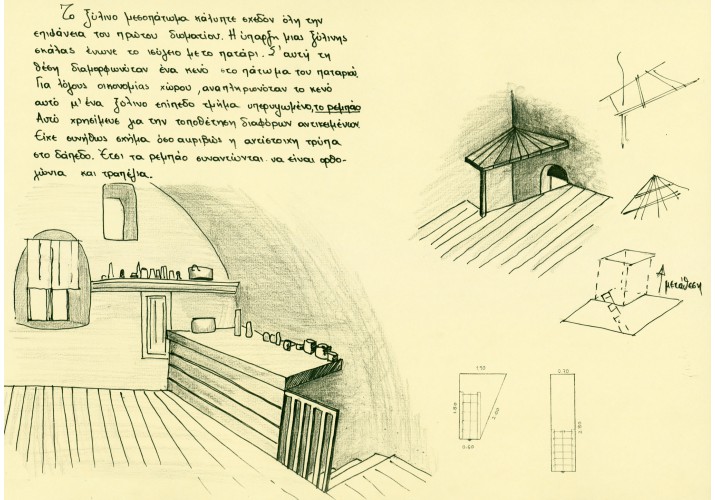 Το ξύλινο μεσοπάτωμα κάλυπτε σχεδον όλη την
επιφάνεια του πρώτου δωματίου. Η ύπαρξη μιας ξύλινης
σκάλας ένωνε το ισόγειο με το πατάρι. Σ' αυτή τη
θέση διαμορφωνόταν ένα κενό στο πάτωμα του παταριού.
Για λόγους οικονομίας χώρου, αναπληρωνόταν το κενό
αυτό μ' ένα ξύλινο επίπεδο τμήμα υπερυψωμένο, το ρεμπάο
Αυτό χρησίμευε για την τοποθέτηση διαφόρων αντικειμένων
Είχε συνήθως σχήμα όσο ακριβώς η αντίστοιχη τρύπα
στο δάπεδο. Έτσι τα ρεμπάο συναντώνται να είναι ορθο-
γώνια και τραπέζια.
μετάθεση
1.50
1.80
2.00
0.60
0.70
2.80